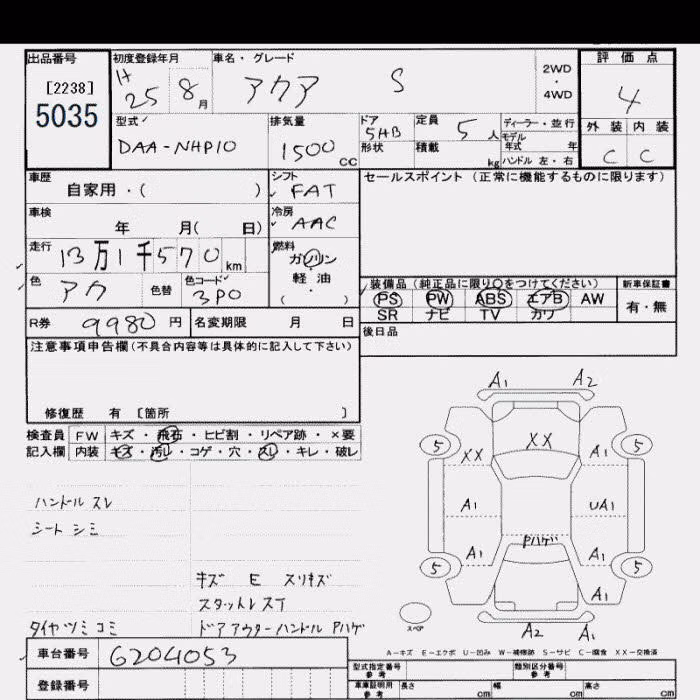 出品番号
[2238]
5035
初度登録年月
H 25 8 月
車名・グレード
アクア S
2WD
・
4WD
評価点
4
外装 内装
C C
型式
DAA-NHP10
排気量
1500 CC
ドア 5HB
形状
定員 5 人
積載 kg
ディーラー・並行
モデル
年式 年
ハンドル 左・右
車歴
自家用・( )
シフト
FAT
セールスポイント (正常に機能するものに限ります)
車検
年 月( 日)
冷房
AAC
走行
13万1千570 km
燃料
ガソリン
軽油
( ・ )
色
アカ
色替
色コード
3P0
装備品 (純正品に限り○をつけてください)
PS PW ABS エアB AW
SR ナビ TV カワ
新車保証書
有・無
R券 9980 円
名変期限 月 日
後日品
注意事項申告欄(不具合内容等は具体的に記入して下さい)
修復歴 有 [箇所 ]
検査員 FW キズ・飛石・ヒビ割・リペア跡・×要
記入欄 内装 キズ・汚レ・コゲ・穴・スレ・キレ・破レ
ハンドル スレ
シート シミ
キズ E スリキズ
スタットレス
タイヤツミコミ
ドアアウターハンドル Pハゲ
A1 A2
5 XX XX A1 5
A1 UA1
Pハゲ
5 A1 A1 5
A1
スペア
A2 A1
A-キズ E-エクボ U-凹み W-補修跡 S-サビ C-腐食 XX-交換済
車台番号 6204053
登録番号
型式指定番号
参考
類別区分番号
参考
車庫証明用
参考
長さ cm 幅 cm 高さ cm